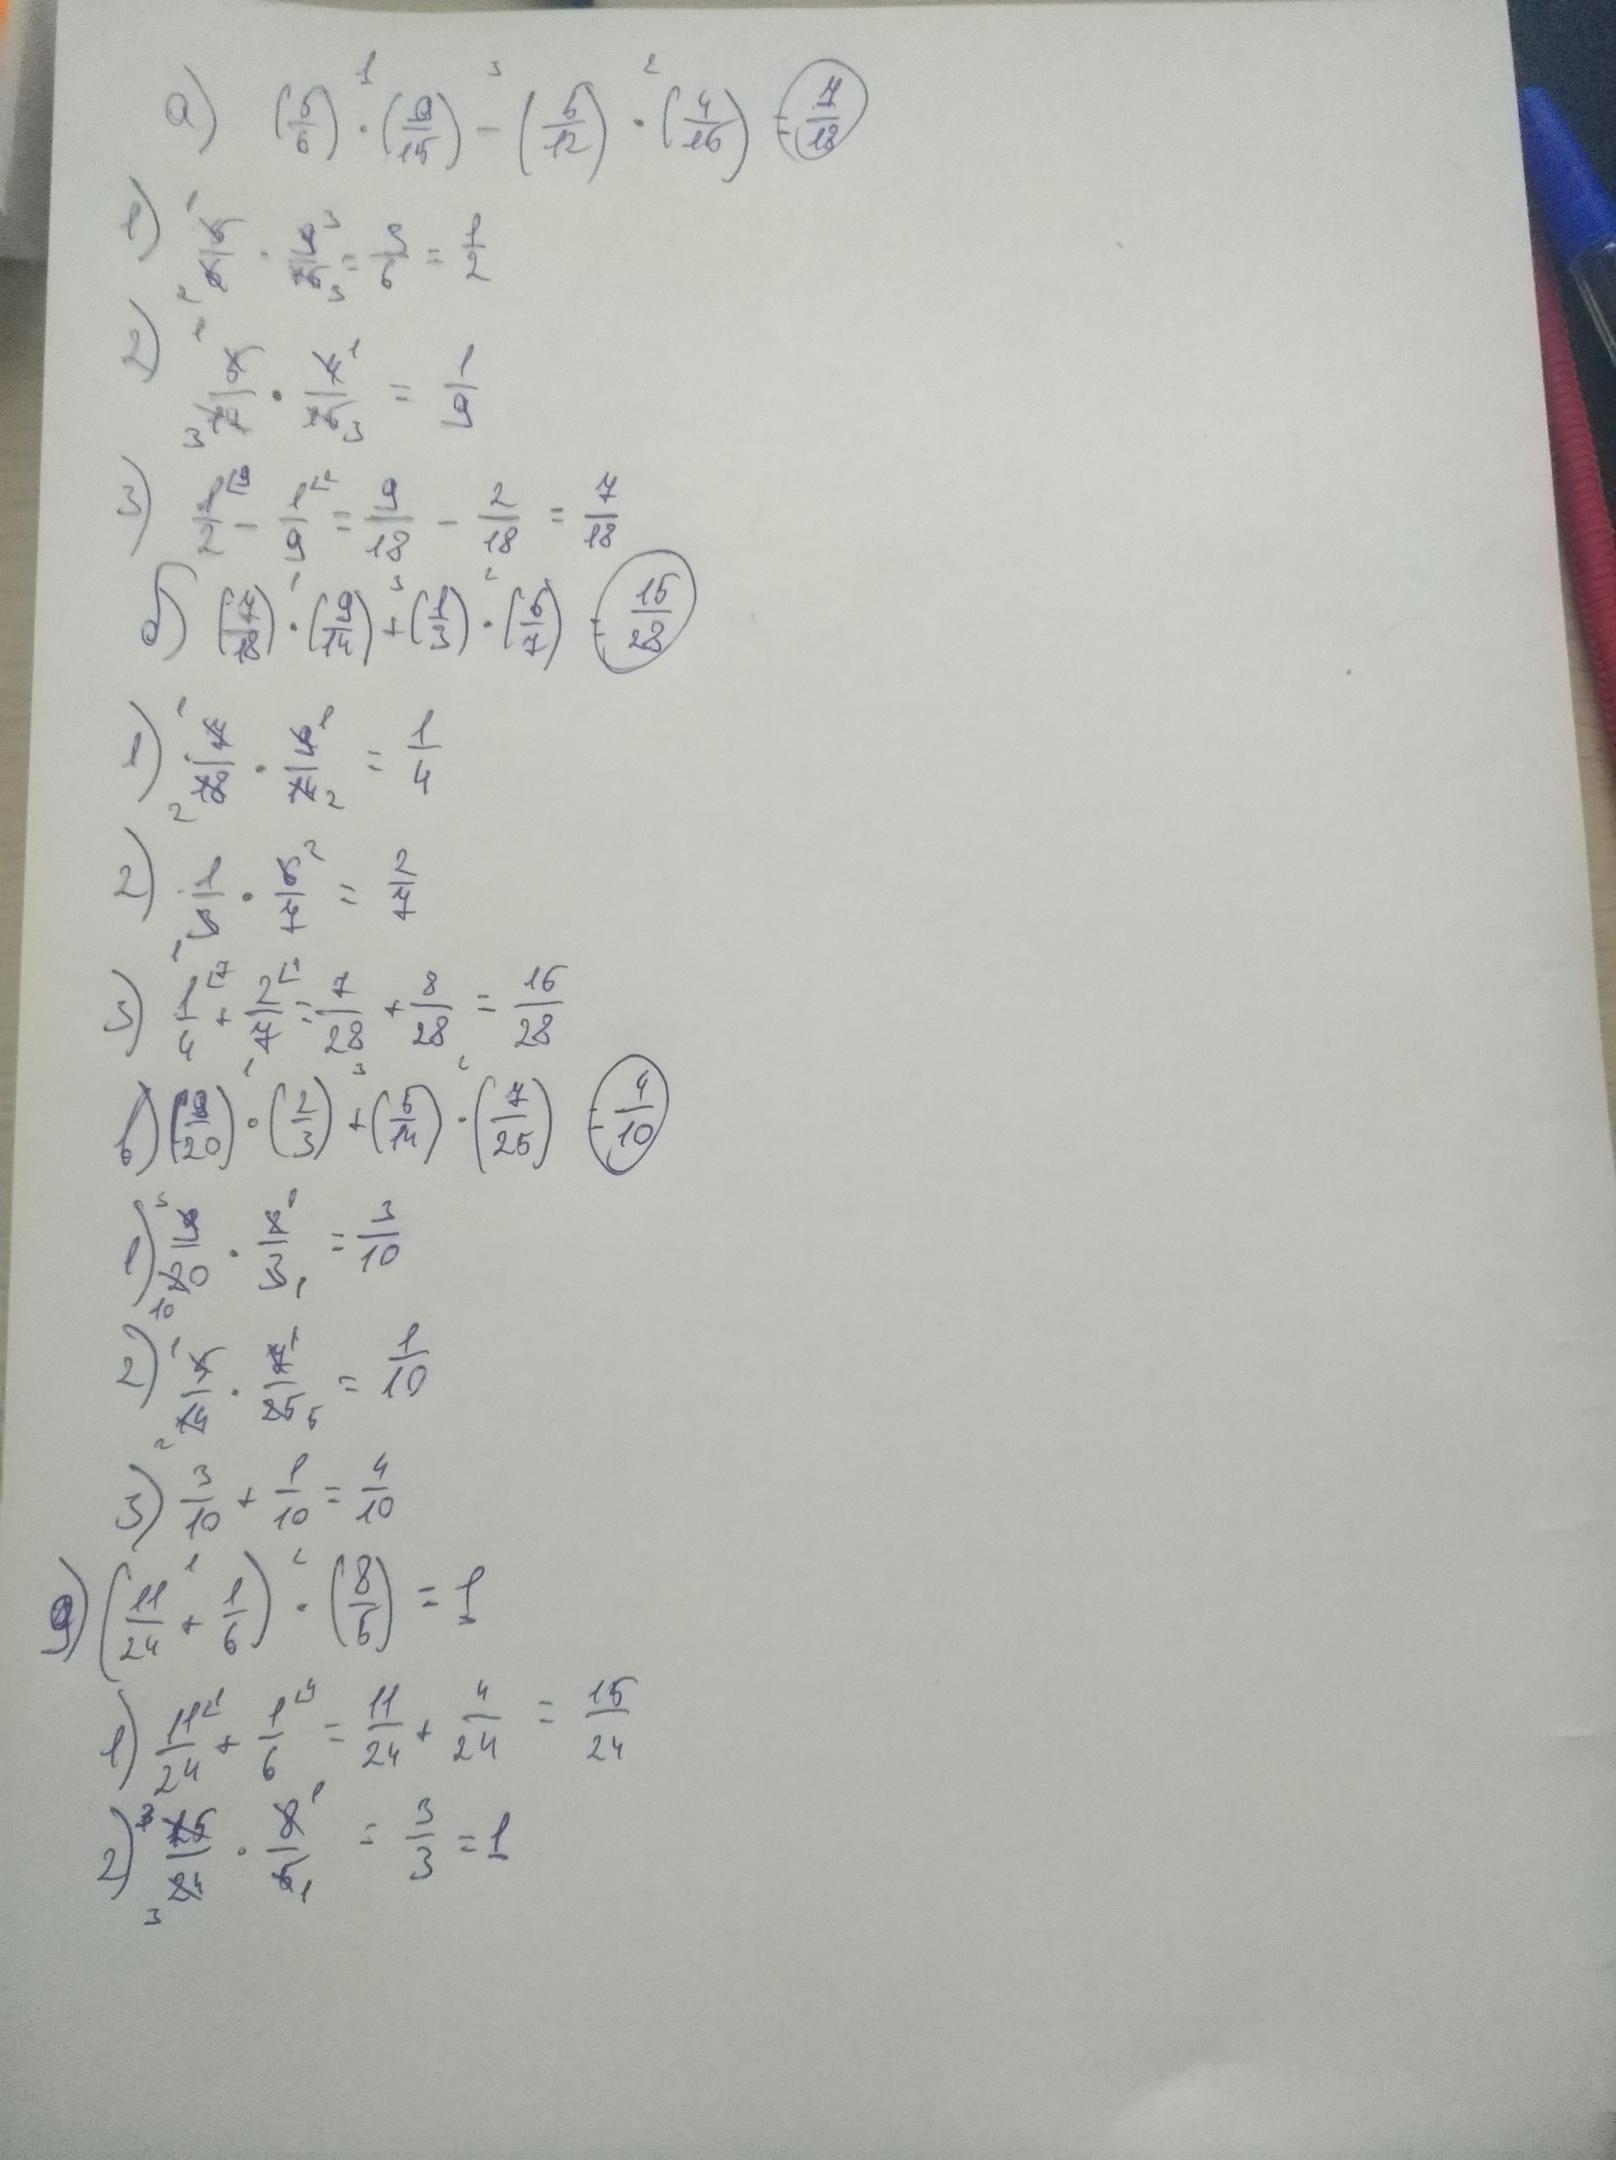 а) (5/6) · (9/15) - (5/12) · (4/15) = 7/18
1) 5/6 · 9/15 = 3/6 = 1/2
2) 5/12 · 4/15 = 1/9
3) 1/2 - 1/9 = 9/18 - 2/18 = 7/18
б) (7/18) · (9/14) + (1/3) · (6/7) = 15/28
1) 7/18 · 9/14 = 1/4
2) 1/3 · 6/7 = 2/7
3) 1/4 + 2/7 = 7/28 + 8/28 = 15/28
в) (9/20) · (2/3) + (5/14) · (7/25) = 4/10
1) 9/20 · 2/3 = 3/10
2) 5/14 · 7/25 = 1/10
3) 3/10 + 1/10 = 4/10
д) (11/24 + 1/6) · (8/5) = 1
1) 11/24 + 1/6 = 11/24 + 4/24 = 15/24
2) 15/24 · 8/5 = 3/3 = 1